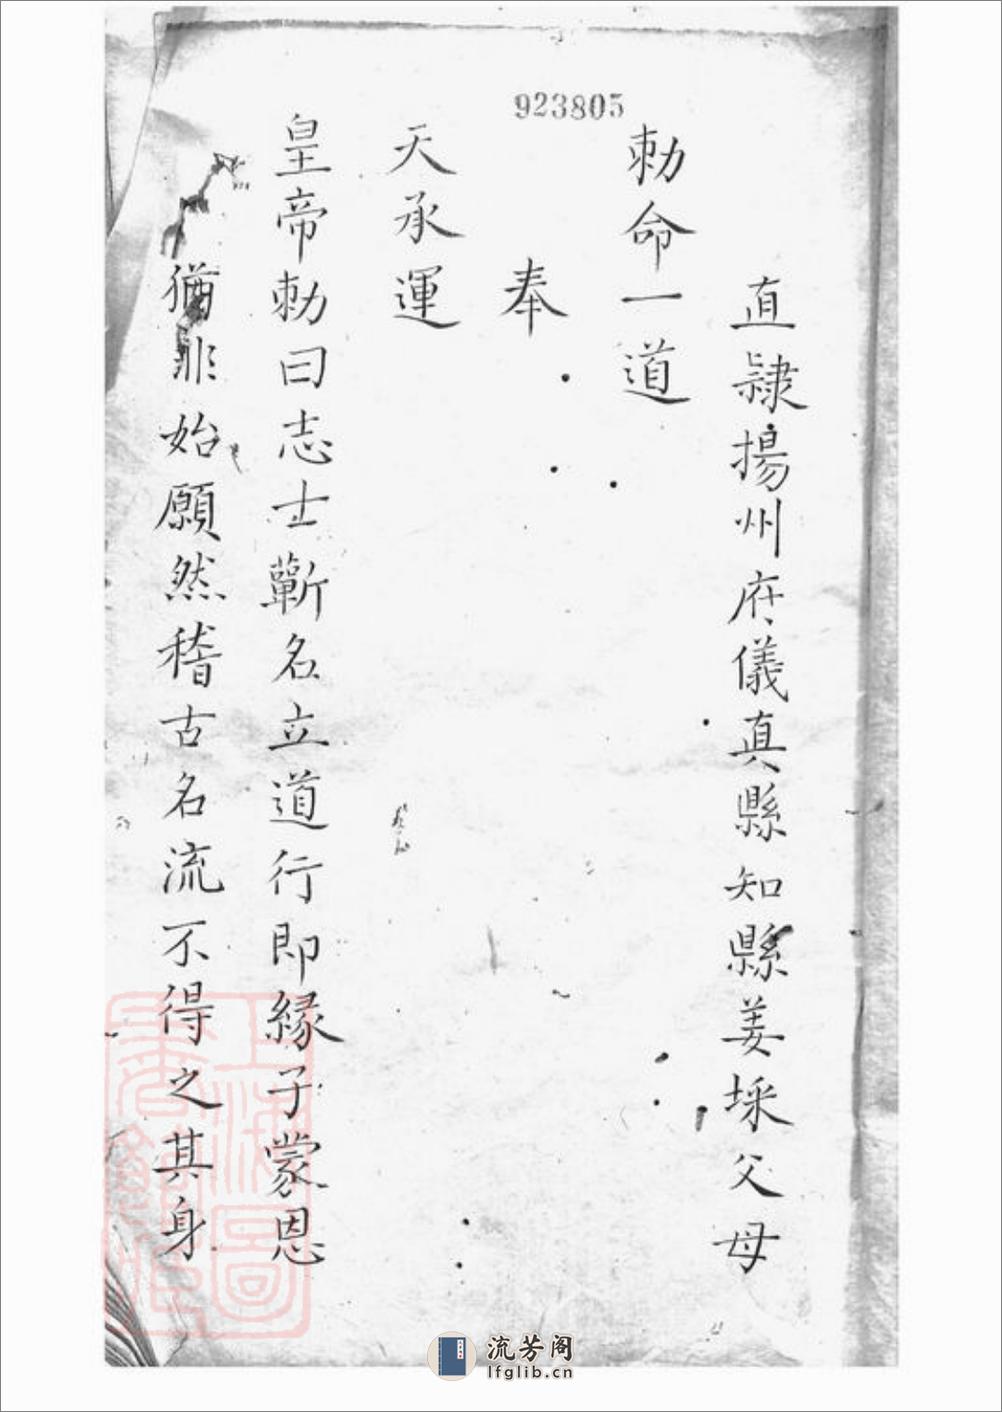 923805
直隸揚州府儀真縣知縣姜埰父母
勅命一道
奉
天承運
皇帝勅曰志士蘄名立道行即緣子蒙恩
猶非始願然稽古名流不得之其身
上海圖書館藏
流芳阁
lfglib.cn